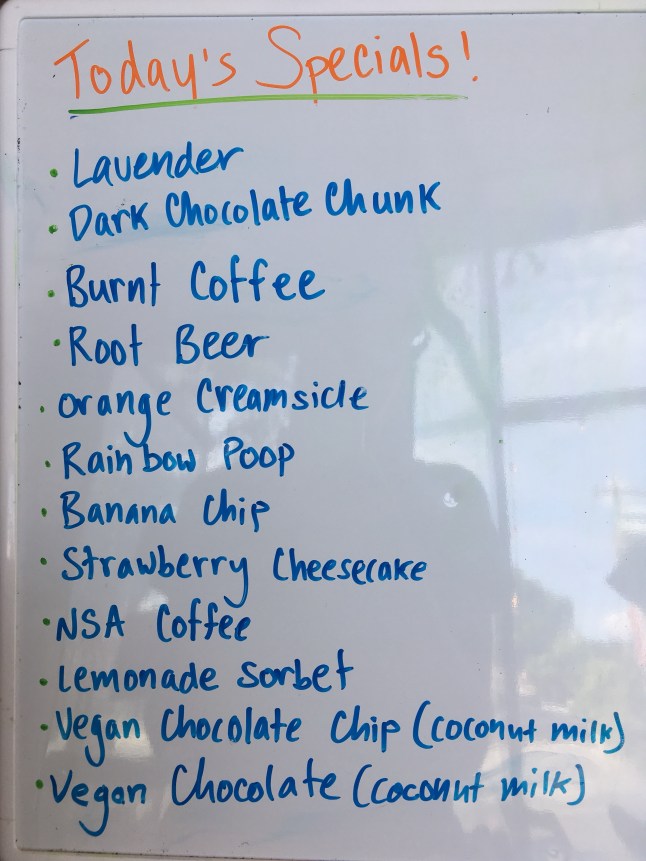 Today's Specials!
• Lavender
• Dark Chocolate Chunk
• Burnt Coffee
• Root Beer
• orange Creamsicle
• Rainbow Poop
• Banana Chip
• Strawberry Cheesecake
• NSA Coffee
• Lemonade Sorbet
• Vegan Chocolate Chip (coconut milk)
• Vegan Chocolate (coconut milk)